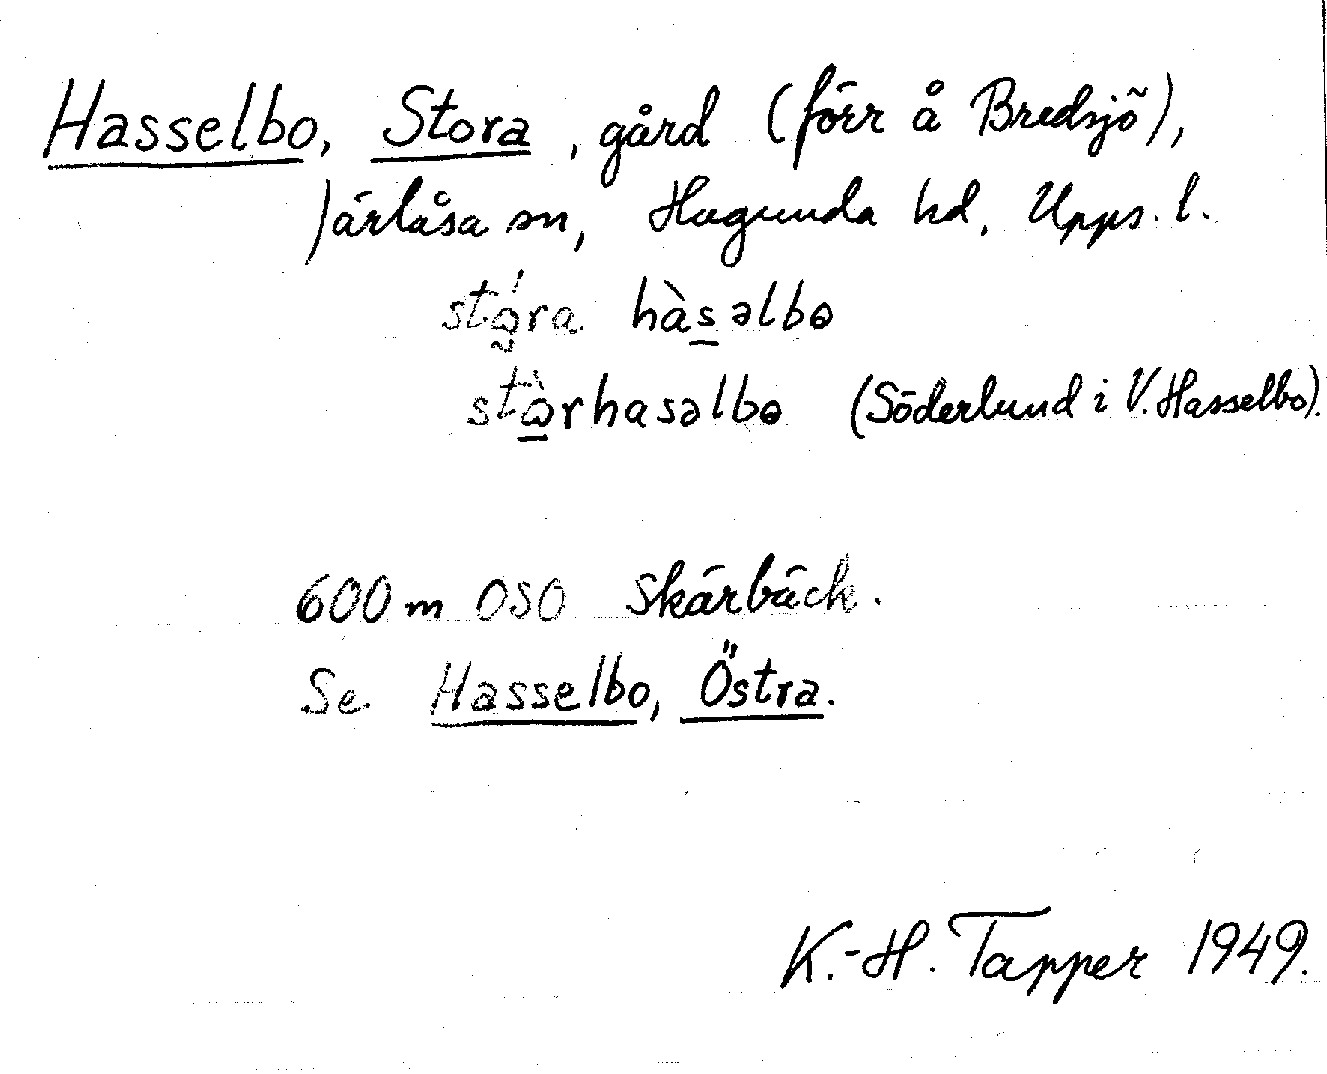 Hasselbo, Stora, gård (förr å Bredsjö),
Järlåsa sn, Hagunda hd, Upps. l.
stó̰ra hàs̲əlbo
stò̲rhasəlbo (Söderlund i V. Hasselbo).
600 m OSO Skärbäck.
Se Hasselbo, Östra.
K.-H. Tapper 1949.